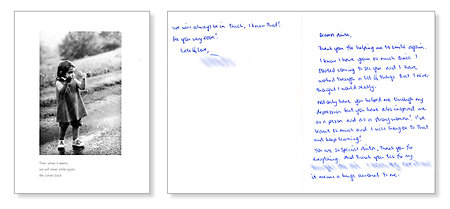 Then, when it seems
we will never smile again,
life comes back.
we will always be in touch, I know that!
See you very soon!
Lots of love,
Dearest Anita,
Thank you for helping me to smile again.
I know I have given so much since I
started coming to see you and I have
worked through a lot of things that I never
thought I would really.
Not only have you helped me through my
depression but you have also inspired me
as a person and as a strong woman! I've
learnt so much and I will hang on to that
and keep learning!
You are so special Anita, thank you for
everything. And thank you too for my
it means a huge amount to me.